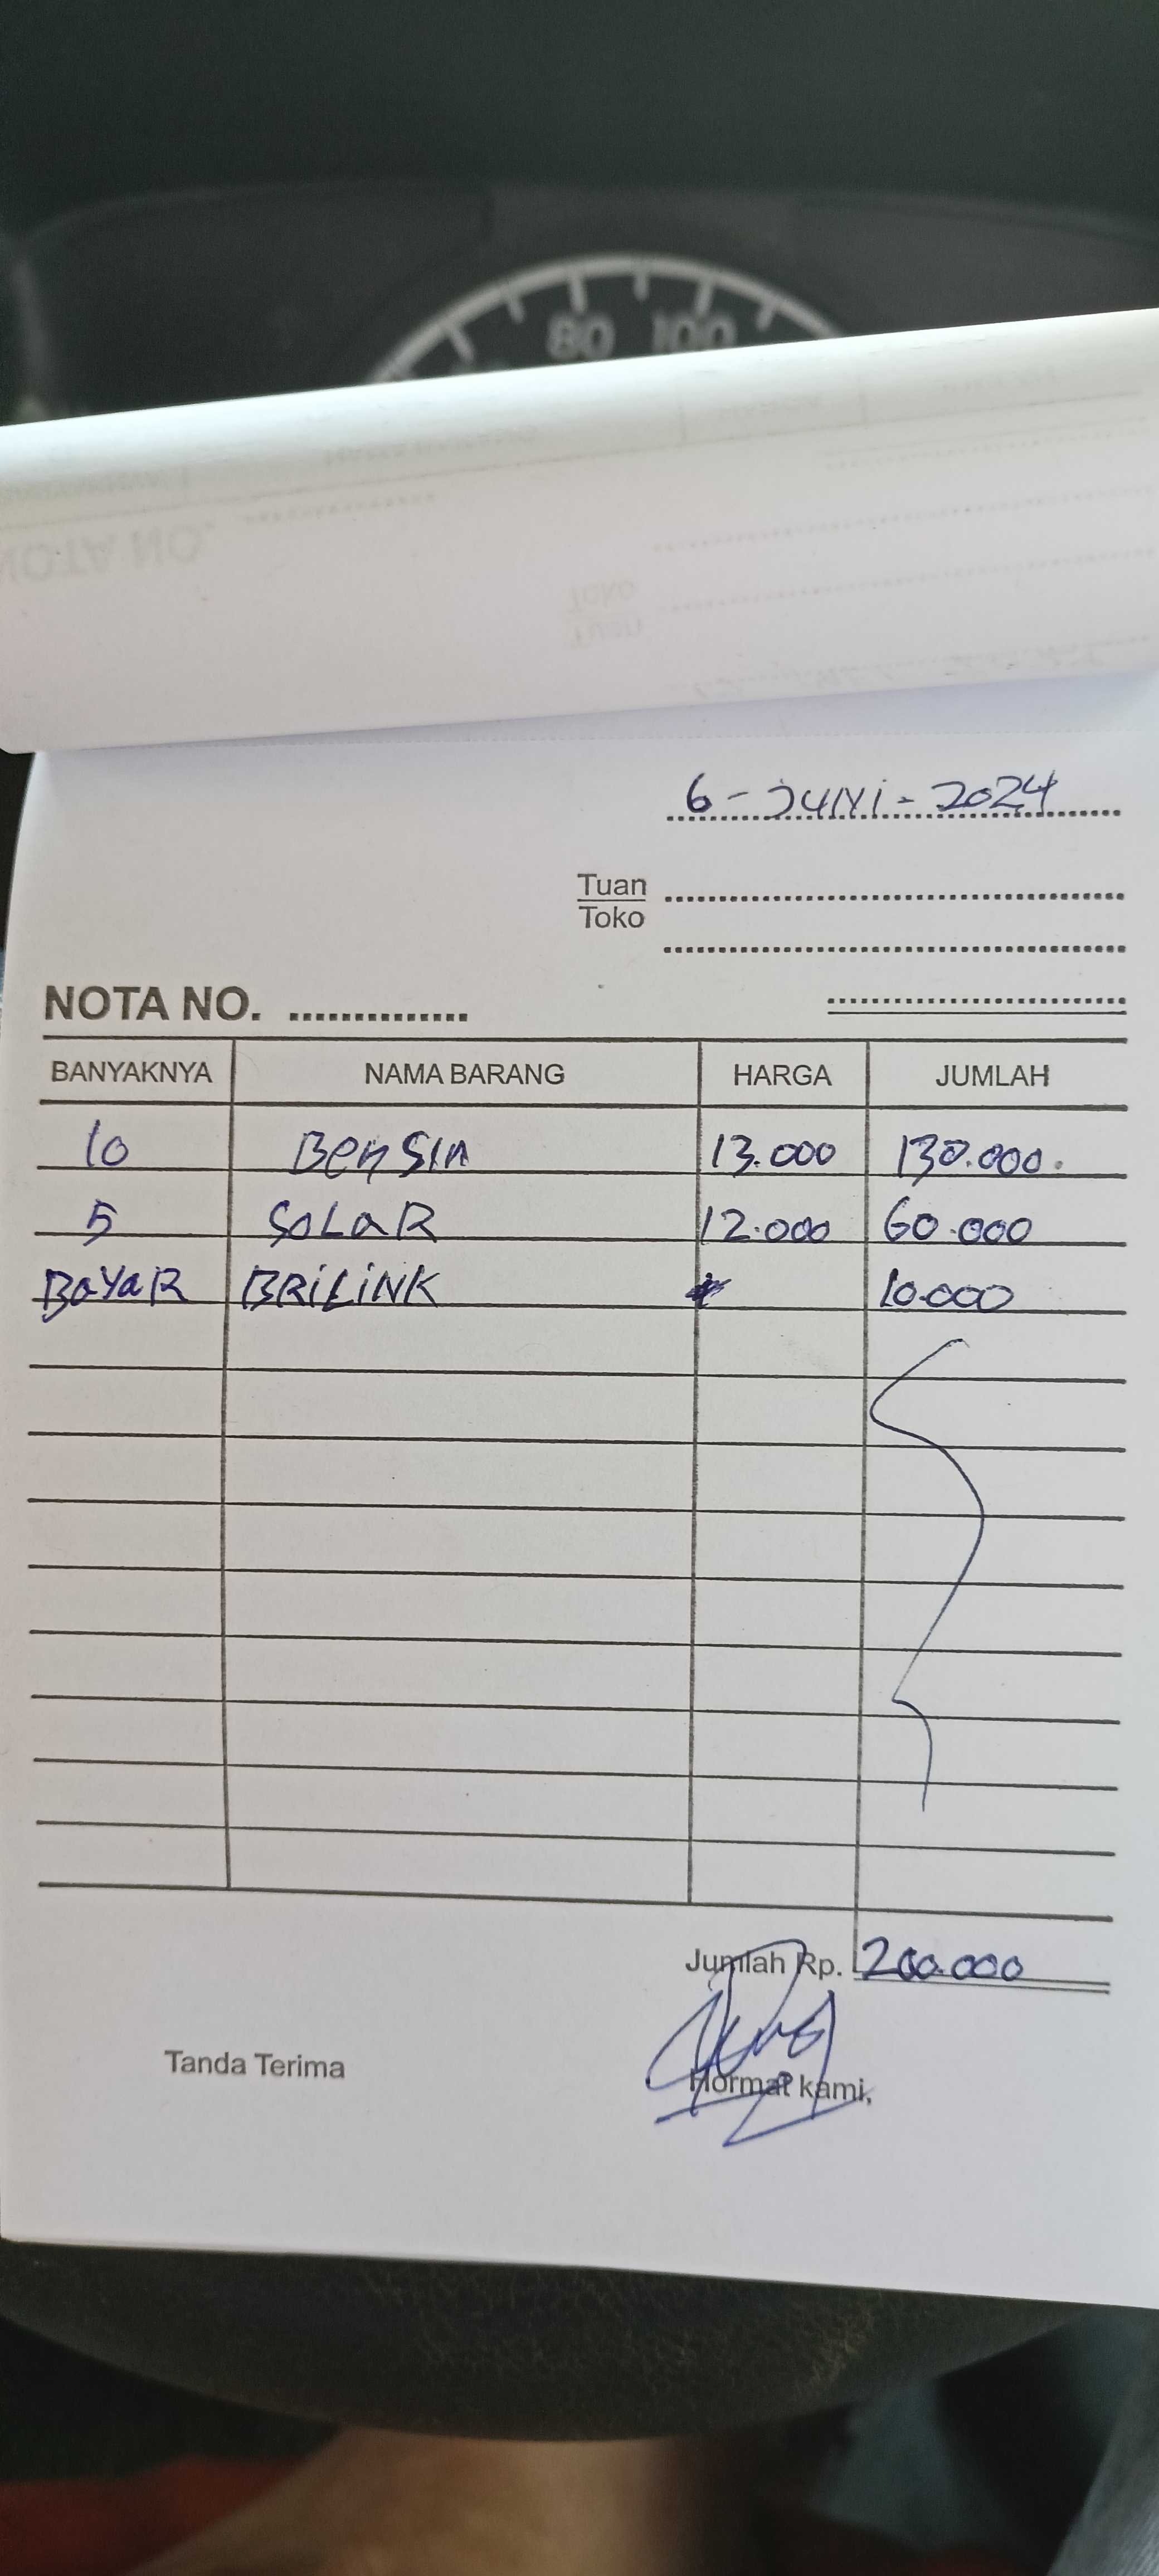 80 100
6 - JUNI - 2024
Tuan
Toko
NOTA NO. ..............
BANYAKNYA NAMA BARANG HARGA JUMLAH
10 BenSin 13.000 130.000.
5 SOLaR 12.000 60.000
BaYaR BRiLiNK 10.000
Jumlah Rp. 200.000
Tanda Terima
Hormat kami,